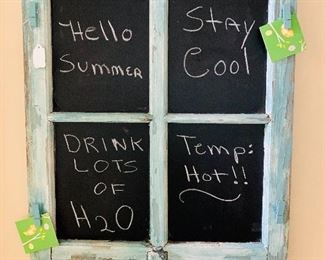 Hello
Summer
Stay
Cool
DRINK
LOTS
OF
H2O
Temp:
Hot!!